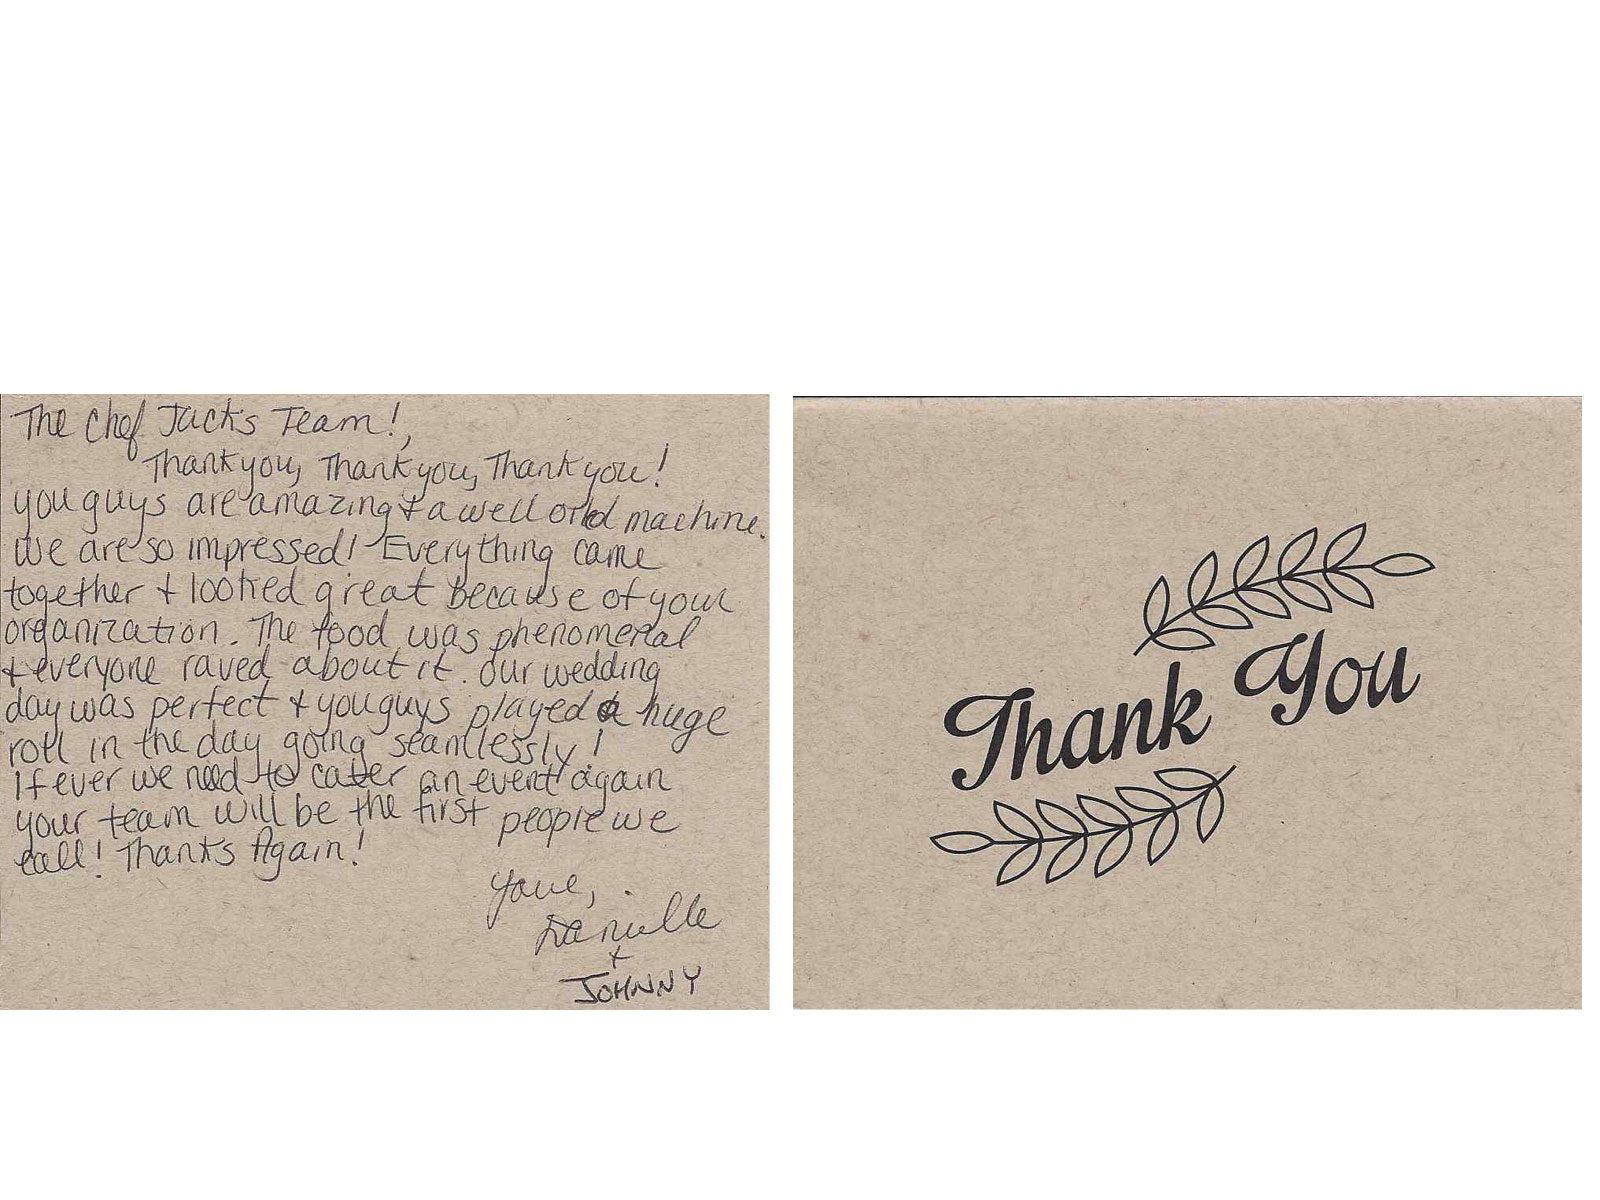 The Chef Jacks Team!,
Thank you, Thank you, Thank you!
you guys are amazing + a well oiled machine.
We are so impressed! Everything came
together + looked great because of your
organization. The food was phenomenal
+ everyone raved about it. Our wedding
day was perfect + you guys played a huge
roll in the day going seamlessly!
If ever we need to cater an event again
your team will be the first people we
call! Thanks Again!
Danielle
+
JOHNNY
Thank You